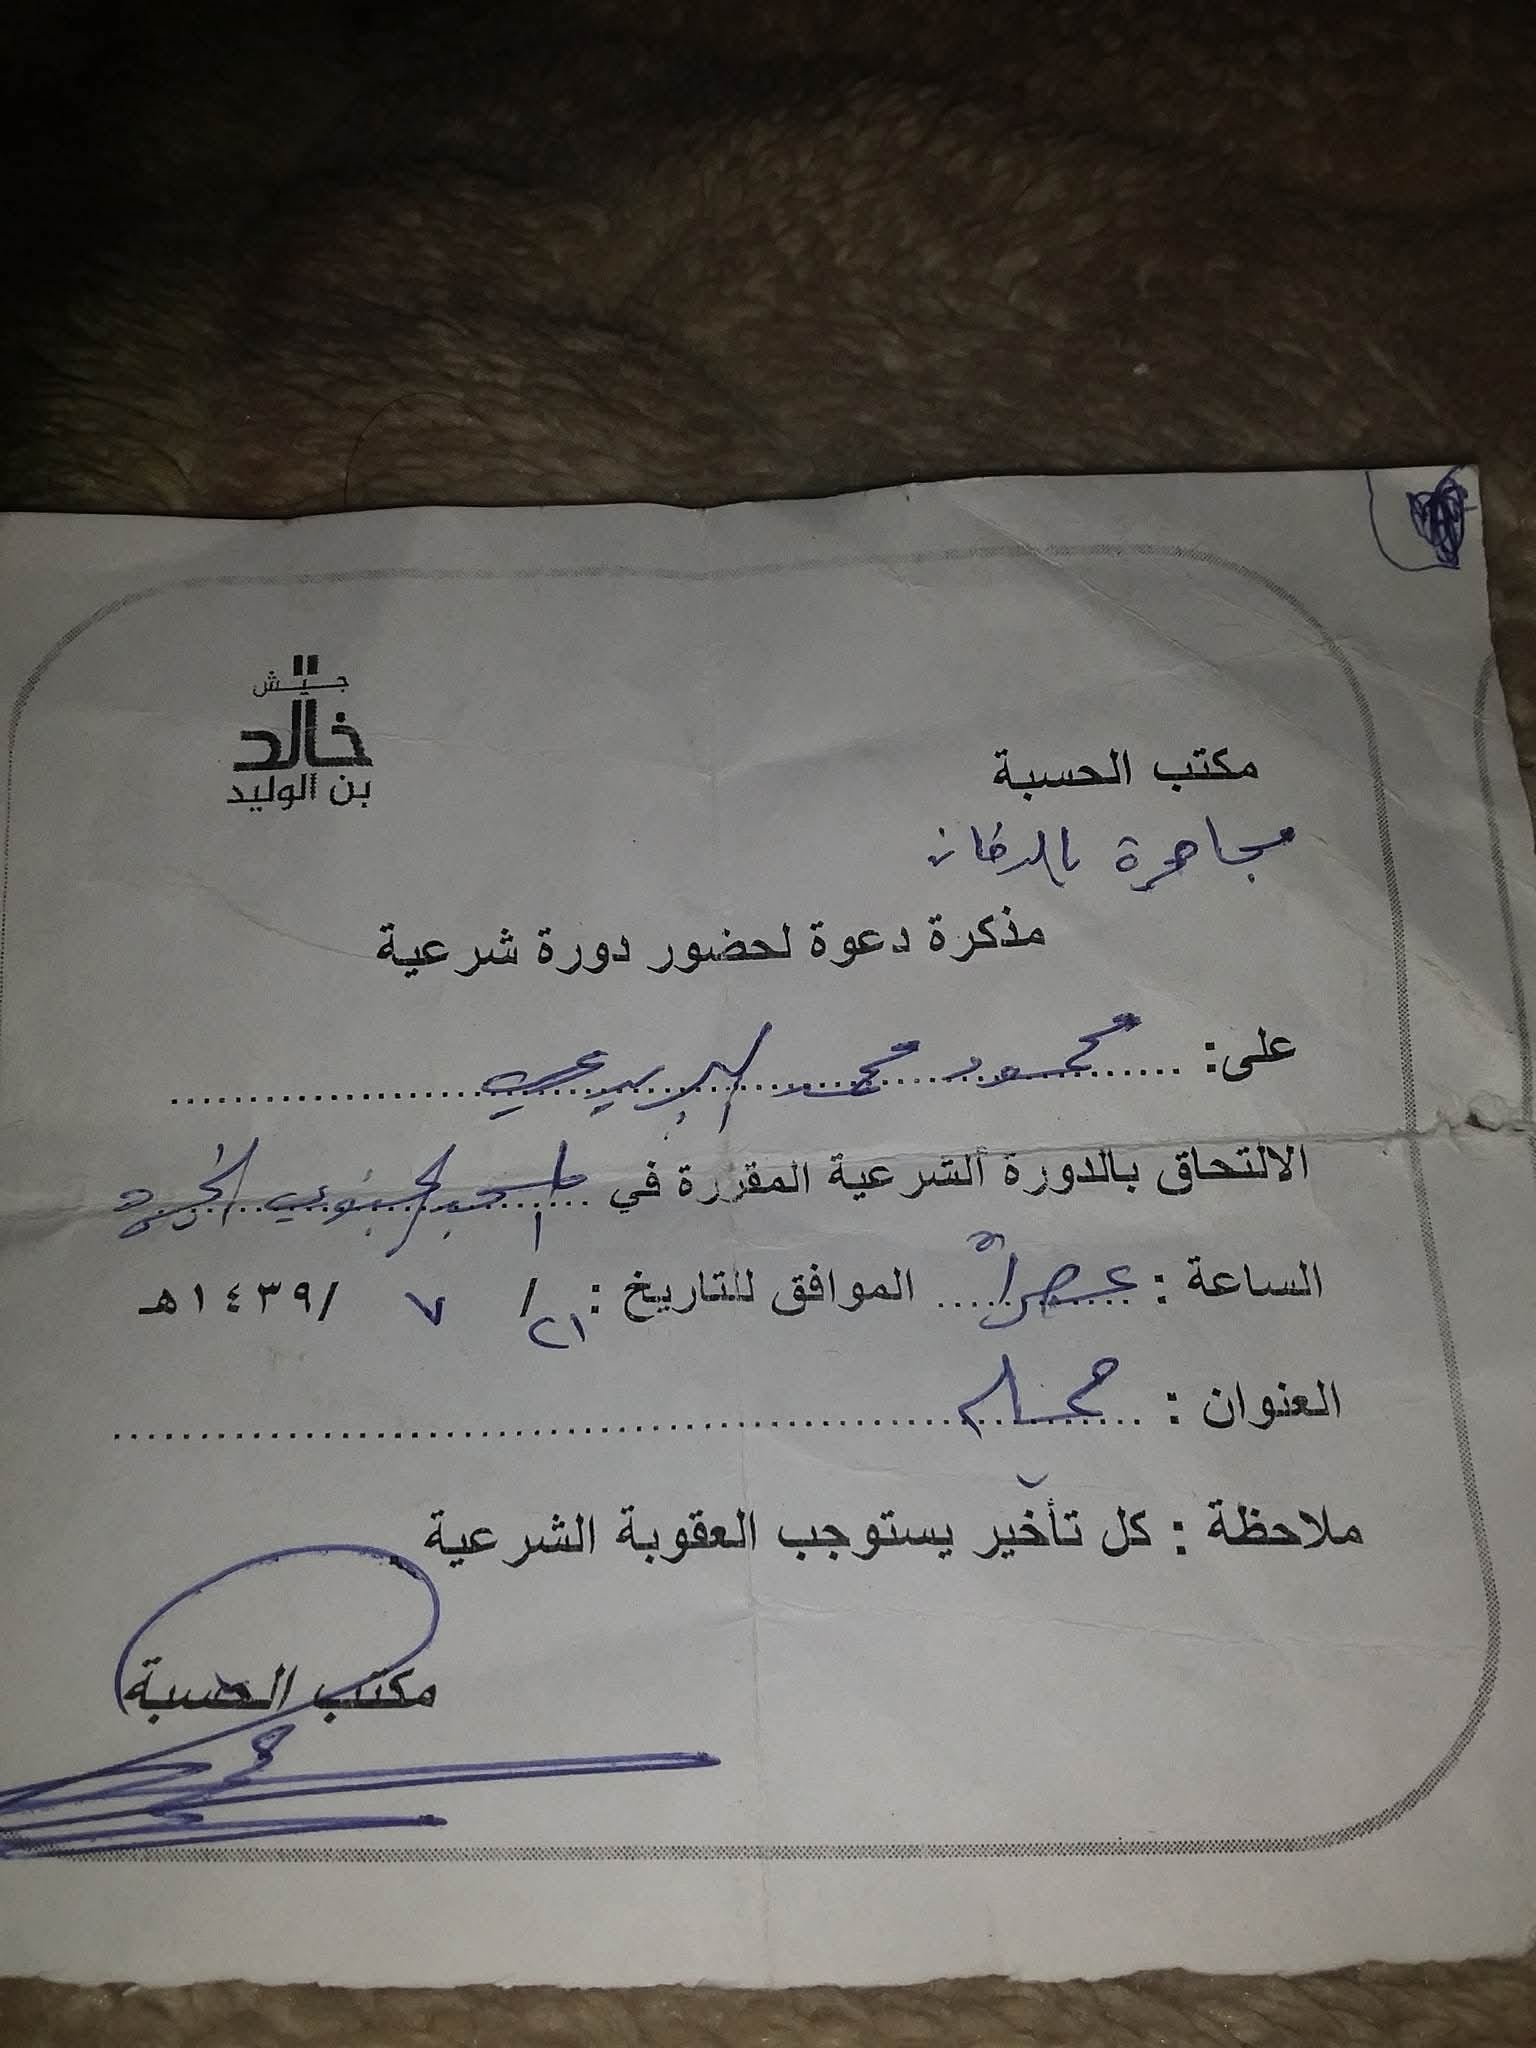 جيش
خالد
بن الوليد
مكتب الحسبة
مجاهرة بالدخان
مذكرة دعوة لحضور دورة شرعية
على: محمود محمد
الالتحاق بالدورة الشرعية المقررة في المسجد الجنوبي
الساعة : عصراً الموافق للتاريخ : ٢١/ ٧ /١٤٣٩هـ
العنوان :
ملاحظة : كل تأخير يستوجب العقوبة الشرعية
مكتب الحسبة